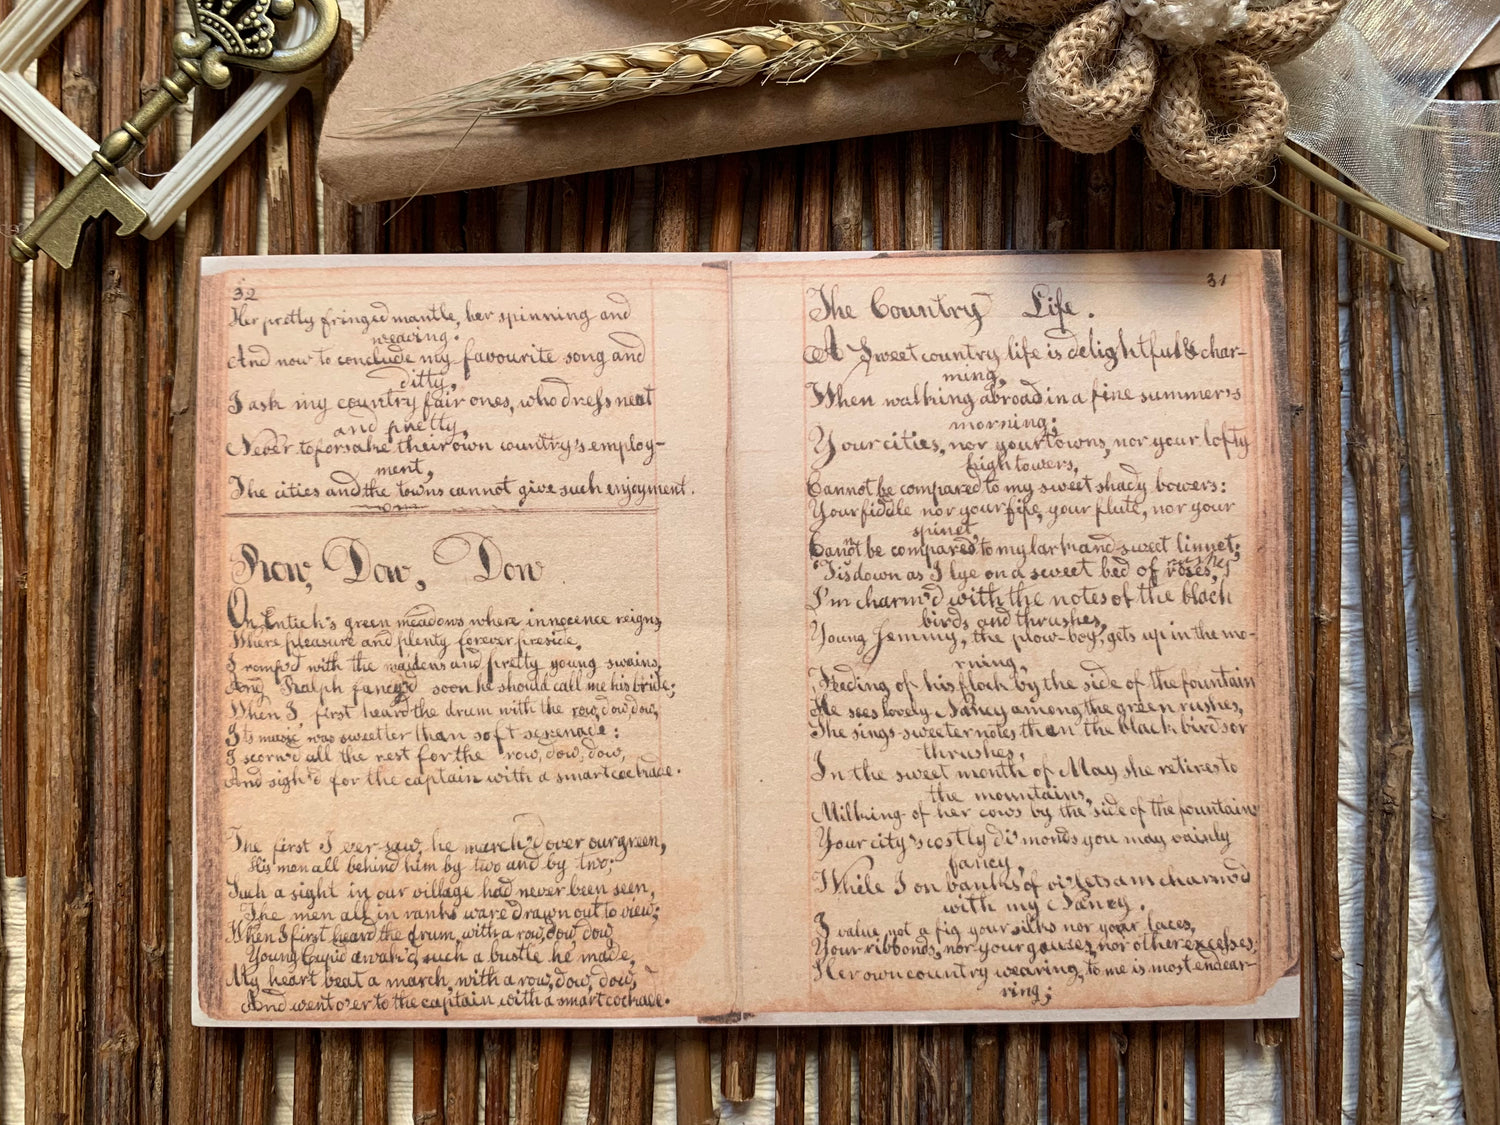 32
Her pretty fringed mantle, her spinning and
weaving.
And now to conclude my favourite song and
ditty,
I ask my country fair ones, who dress neat
and pretty,
Never to forsake their own country's employ-
ment,
The cities and the towns cannot give such enjoyment.
Row, Dow, Dow
On Entick's green meadows where innocence reigns,
Where pleasure and plenty forever preside,
I romp'd with the maidens and pretty young swains,
And Ralph fancy'd soon he should call me his bride;
When I first heard the drum with the row, dow, dow,
Its music was sweeter than soft serenade:
I scorn'd all the rest for the row, dow, dow,
And sigh'd for the captain with a smart cockade.
The first I ever saw, he march'd over our green,
His men all behind him by two and by two;
Such a sight in our village had never been seen,
The men all in ranks ware drawn out to view;
When I first heard the drum, with a row, dow, dow,
Young Cupid awak'd, such a bustle he made,
My heart beat a march, with a row, dow, dow,
And went o'er to the captain with a smart cockade.
31
The Country Life.
A Sweet country life is delightful & char-
ming,
When walking abroad in a fine summer's
morning;
Your cities, nor your towns, nor your lofty
high towers,
Cannot be compared to my sweet shady bowers:
Your fiddle nor your fife, your flute, nor your
spinet,
Cannot be compared to my lark and sweet linnet;
'Tis down as I lye on a sweet bed of roses,
I'm charm'd with the notes of the black
birds and thrushes,
Young Jemmy, the plow-boy, gets up in the mo-
rning,
Feeding of his flock by the side of the fountain
He sees lovely Nancy among the green rushes,
She sings sweeter notes than the black birds or
thrushes,
In the sweet month of May she retires to
the mountains,
Milking of her cows by the side of the fountains
Your city's costly di'monds you may vainly
fancy,
While I on banks of vi'lets am charm'd
with my Nancy.
I value not a fig your silks nor your laces,
Your ribbonds, nor your gauzes, nor other excesses;
Her own country wearing, to me is most endear-
ring;